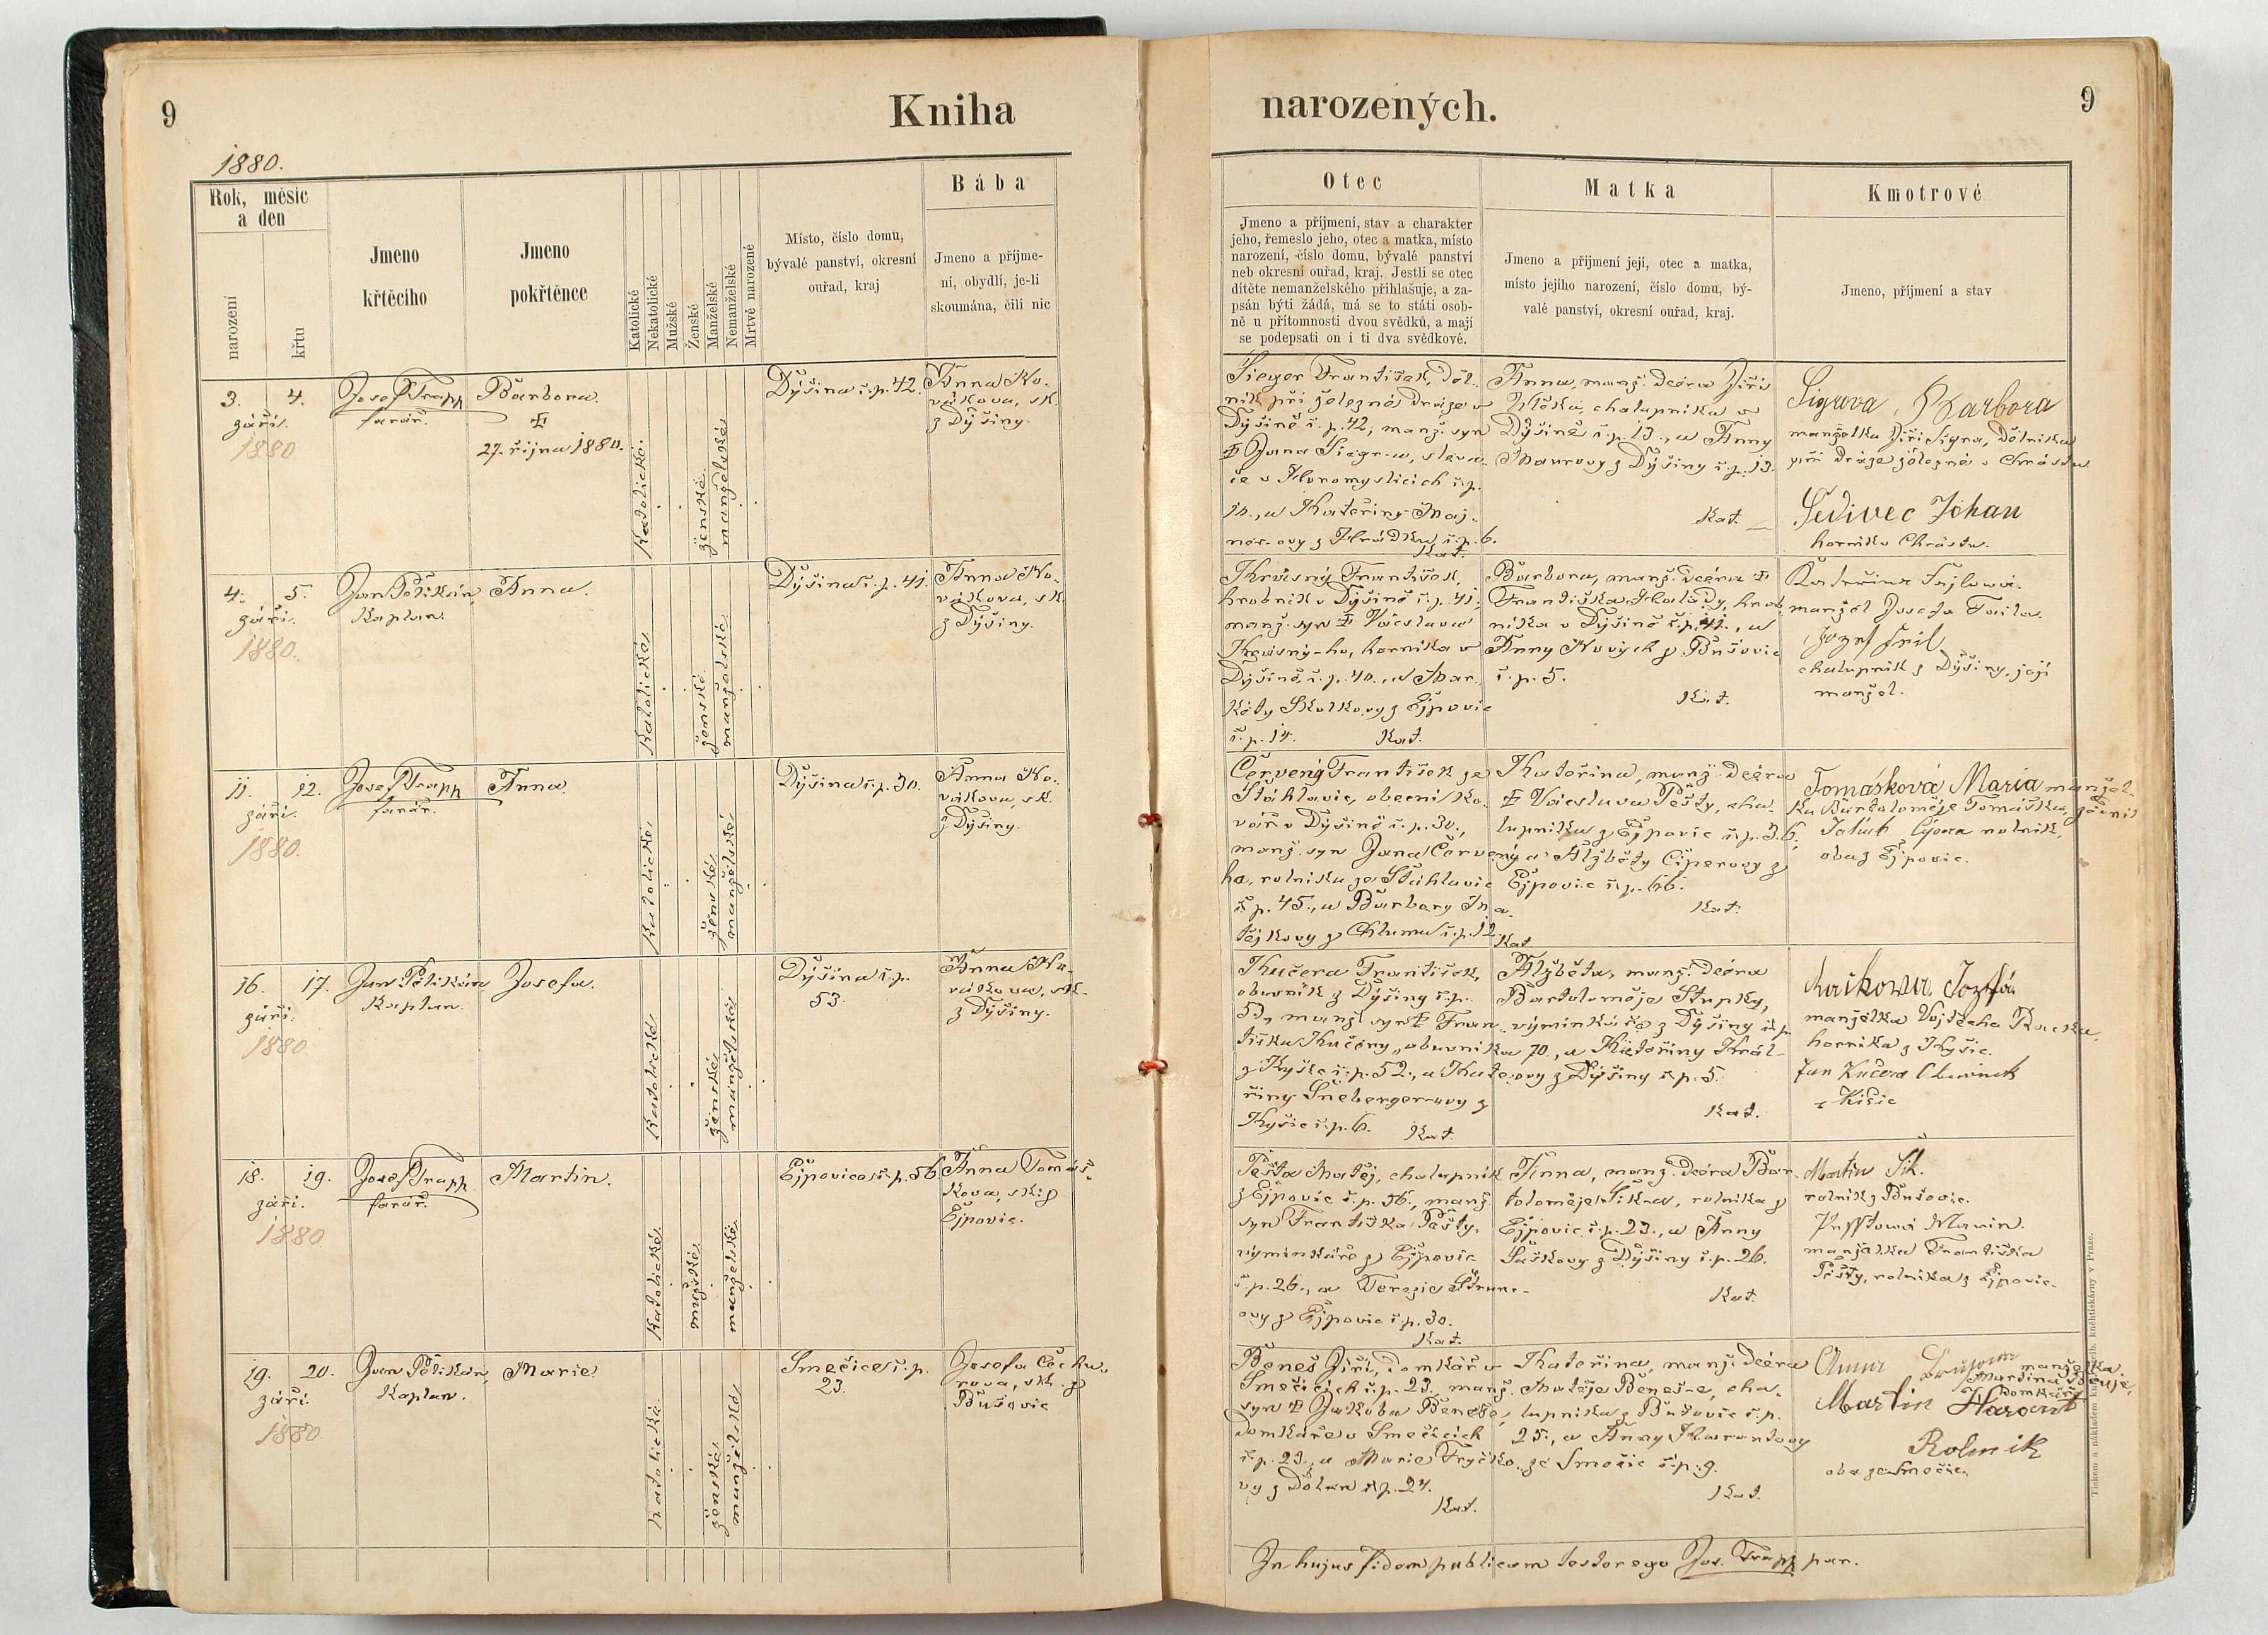 9
Kniha
narozených.
9
1880.
Rok, měsíc
a den
narození
křtu
Jmeno
křtěcího
Jmeno
pokřtěnce
Katolické
Nekatolické
Mužské
Ženské
Manželské
Nemanželské
Mrtvě narozené
Místo, číslo domu,
bývalé panství, okresní
ouřad, kraj
Bába
Jmeno a příjme-
ní, obydlí, je-li
skoumána, čili nic
Otec
Jmeno a příjmení, stav a charakter
jeho, řemeslo jeho, otec a matka, místo
narození, číslo domu, bývalé panství
neb okresní ouřad, kraj. Jestli se otec
dítěte nemanželského přihlašuje, a za-
psán býti žádá, má se to státi osob-
ně u přítomnosti dvou svědků, a mají
se podepsati on i ti dva svědkové.
Matka
Jmeno a příjmení její, otec a matka,
místo jejího narození, číslo domu, bý-
valé panství, okresní ouřad, kraj.
Kmotrové
Jmeno, příjmení a stav
3. 4.
září.
1880
Josef Trapp
farář.
Barbora.
27. října 1880.
Katolické.
ženské.
manželské
Dýšina č.p. 42.
Anna No-
vákova, sk.
z Dýšiny.
Sieger František, děl-
ník při železné dráze v
Dýšině č. p. 42, manž. syn
Jana Sieger-a,
ie v Horomyslicích č.p.
10., a Kateřiny Maj-
ner-ovy z Hrádku č.p. 6.
Kat.
Anna, manž. dcera Jiří
Vlčka, chalupníka v
Dýšině č.p. 13., a Anny
Maurovy z Dýšiny č.p. 13.
Kat.
Sigrova, Barbora
manželka Jiří Sigra, dělníka
při dráze železné v Chrástu
Šedivec Johan
horník v Chrástu.
4. 5.
září.
1880.
Jan Pelikán,
kaplan.
Anna.
Katolické
ženské
manželské
Dýšina č.p. 41.
Anna No-
vákova, sk.
z Dýšiny.
František,
hrobník v Dýšině č.p. 41,
manž. syn Václava
horníka v
Dýšině č.p. 40., a Mar-
kéty Skolkovy z Ejpovic
č.p. 14. Kat.
Barbora, manž. dcera
Františka Halady, hrob-
níka v Dýšině č.p. 41., a
Anny Nových z Bušovic
č.p. 5.
Kat.
manžel Josefa Fajla.
chalupník z Dýšiny, její
manžel.
11. 12.
září.
1880.
Josef Trapp
farář.
Anna.
Katolické
ženské
manželské
Dýšina č.p. 30.
Anna No-
vákova, sk.
z Dýšiny.
Červený František ze
Stáhlavic, obecní ko-
vář v Dýšině č.p. 30.,
manž. syn Jana Červený-
ho, rolníka ze Stáhlavic
č.p. 45., a Barbory
z Chlumu č.p. 12.
Kat.
Kateřina, manž. dcera
Václava Pešty, cha-
lupníka z Ejpovic č.p. 36,
a Alžběty Ciperovy z
Ejpovic č.p. 66.
Kat.
Tomášková Maria manžel-
ka Bartoloměje Tomáška,
rolník,
oba z Ejpovic.
16. 17.
září.
1880
Jan Pelikán
kaplan.
Josefa.
Katolické
ženské
manželské
Dýšina č.p.
53.
Anna No-
vákova, sk.
z Dýšiny.
Kučera František,
obuvník z Dýšiny č.p.
53., manž. syn Fran-
tiška Kučery, obuvníka
z Kyšic č.p. 52., a Kate-
řiny Šneberger-ovy z
Kyšic č.p. 6. Kat.
Alžběta, manž. dcera
Bartoloměje Stupky,
výminkáře z Dýšiny č.p.
70., a Kateřiny Král-
ovy z Dýšiny č.p. 5.
Kat.
manželka Vojtěcha
horníka z Kyšic.
Jan Kučera
z Kišic
18. 19.
září.
1880
Josef Trapp
farář.
Martin.
Katolické
mužské
manželské
Ejpovice č.p. 56.
Anna Tomáš-
kova, sk. z
Ejpovic.
Pešta Matěj, chalupník
z Ejpovic č.p. 56., manž.
syn Františka Pešty,
výminkáře z Ejpovic
č.p. 26., a Terezie
ovy z Ejpovic č.p. 30.
Kat.
Anna, manž. dcera Bar-
toloměje Šik-a, rolníka z
Ejpovic č.p. 23., a Anny
Šaškovy z Dýšiny č.p. 26.
Kat.
Martin Šik.
rolník z Bušovic.
manželka Františka
Pešty, rolníka z Ejpovic.
19. 20.
září.
1880
Jan Pelikán,
kaplan.
Marie.
katolické
ženské
manželské
Smečice č.p.
23.
Josefa Čecha-
rova, sk. z
Bušovic
Beneš Jiří, domkář v
Smečicích č.p. 23., manž.
syn Jakoba Beneše,
domkáře v Smečicích
č.p. 23., a Marie Fryčko-
vy z Dolan č.p. 24.
Kat.
Kateřina, manž. dcera
Matěje Beneš-e, cha-
lupníka z Bušovic č.p.
25., a Anny Harantovy
ze Smečic č.p. 9.
Kat.
Anna
manželka
Martina
domkáře
Martin Harant
Rolnik
oba ze Smečic.
In hujus fidem publicam testor ego Jos. Trapp par.